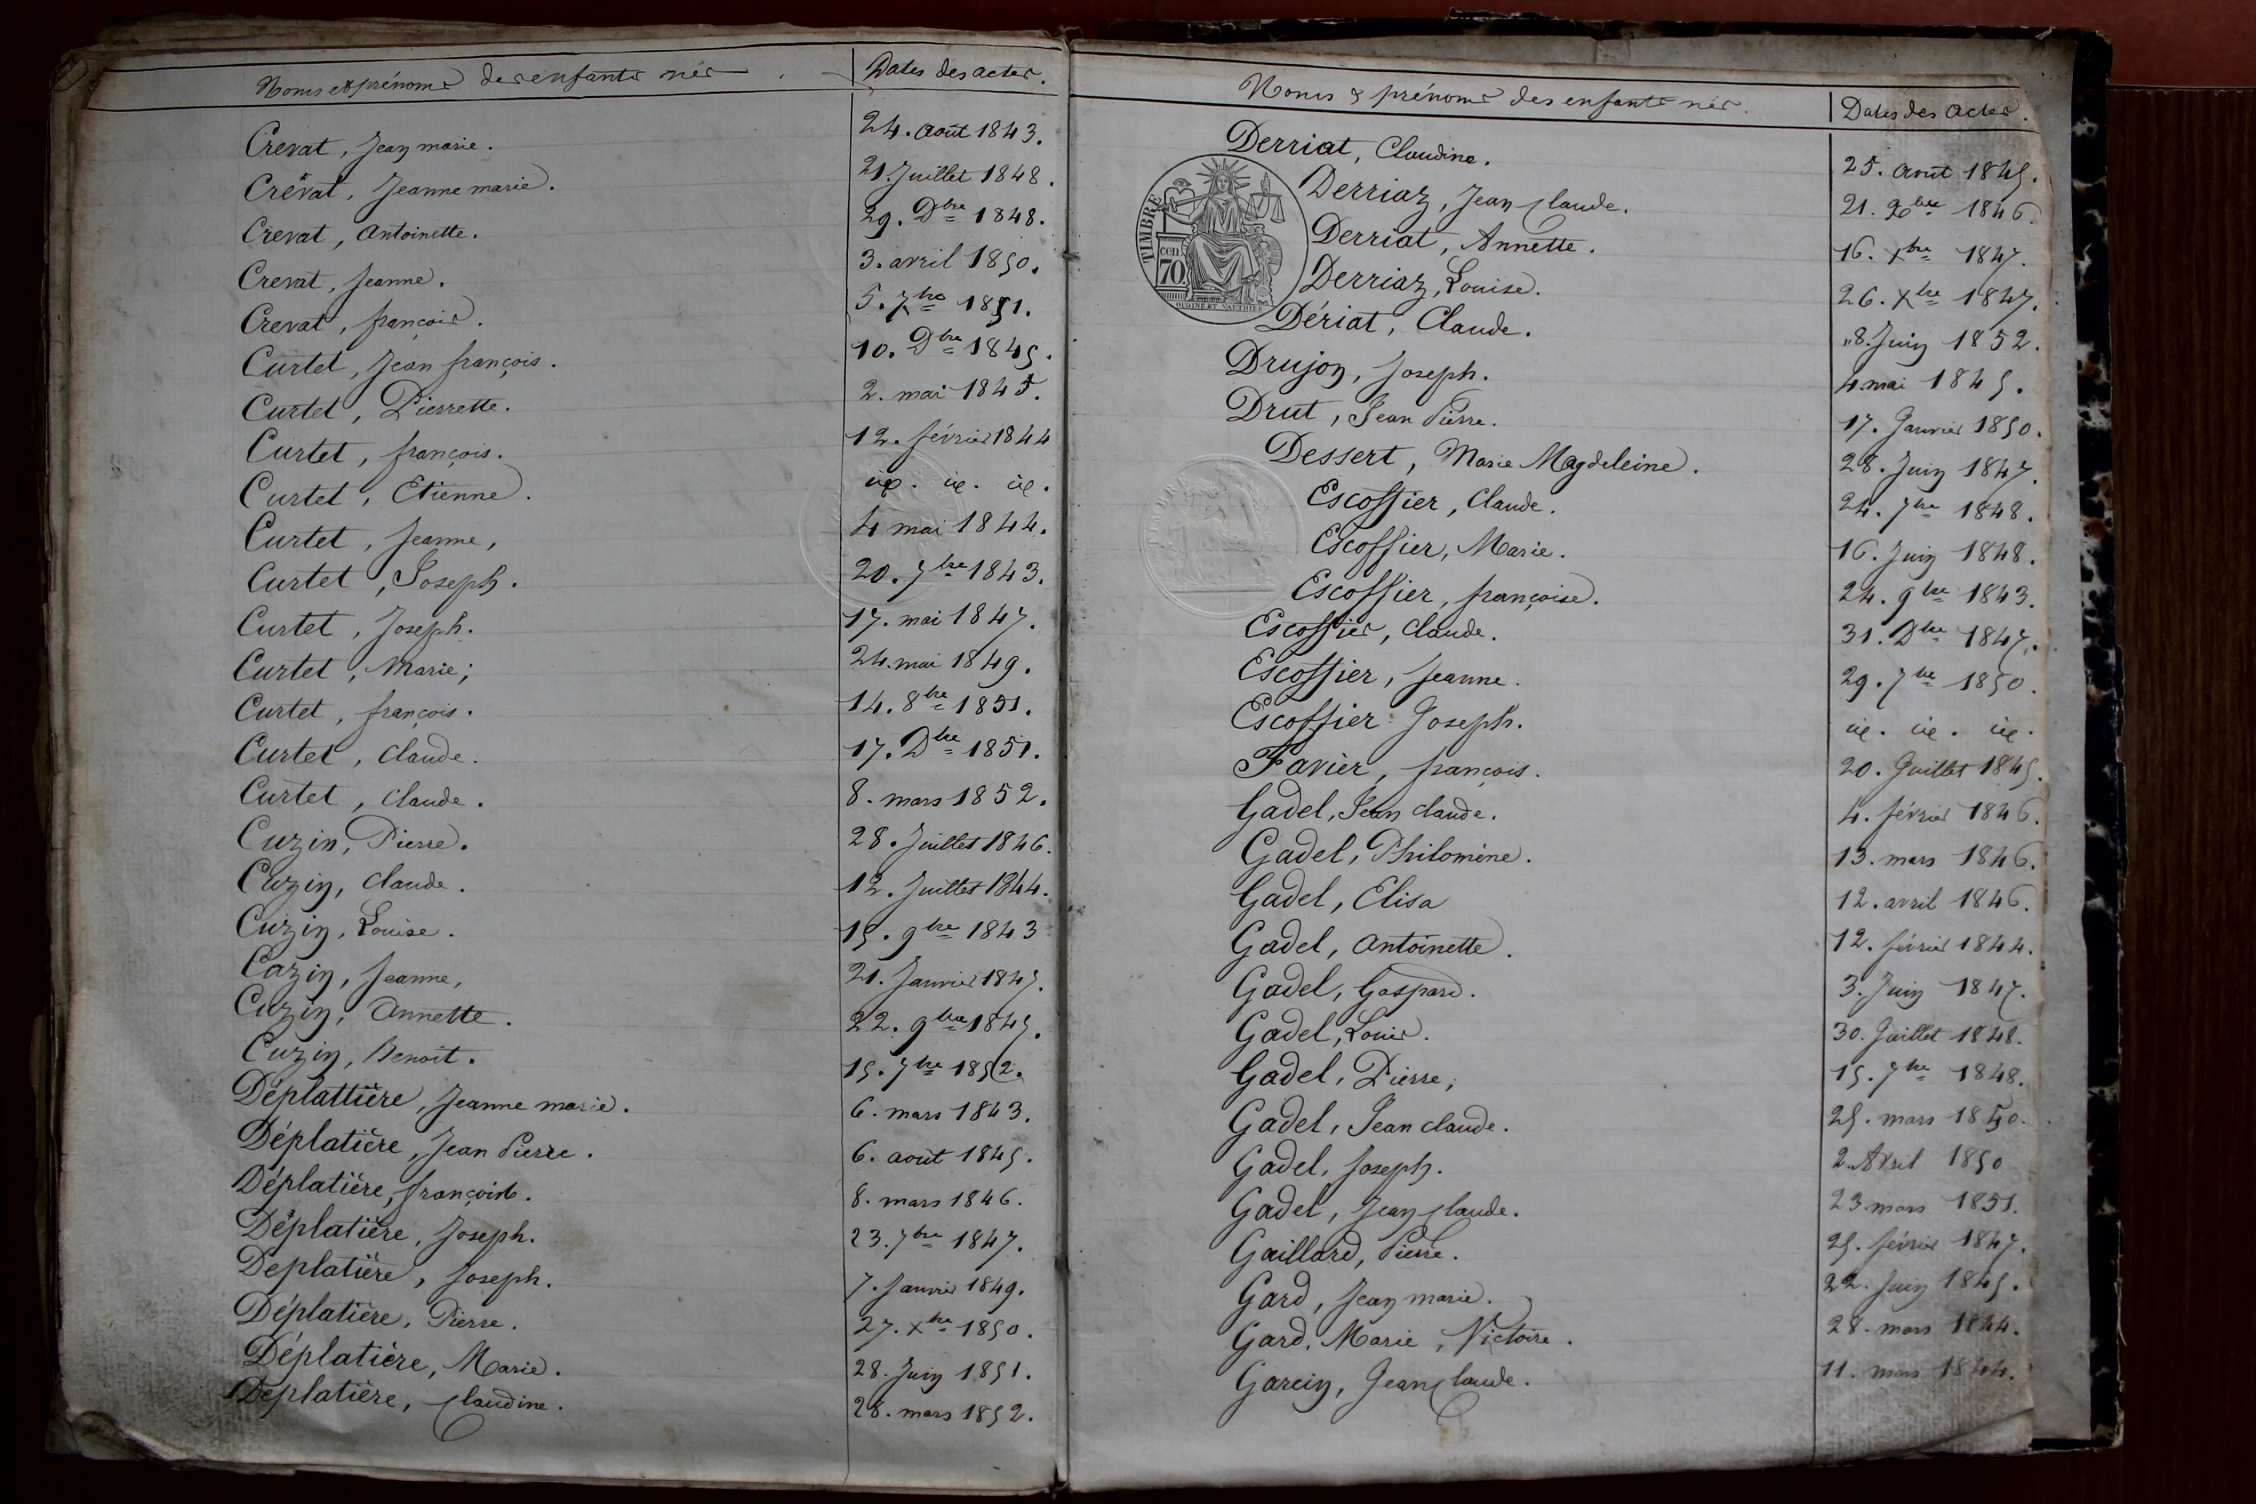 Noms et prénoms des enfants nés. Dates des actes.
Crevat, Jean marie. 24. août 1843.
Crévat, Jeanne marie. 21. Juillet 1848.
Crevat, antoinette. 29. Dbre 1848.
Crevat, Jeanne. 3. avril 1850.
Crevat, françois. 5. 7bre 1851.
Curtet, Jean françois. 10. Dbre 1845.
Curtet, Pierrette. 2. mai 1845.
Curtet, françois. 12. février 1844
Curtet, Etienne.
Curtet, Jeanne, 4 mai 1844.
Curtet, Joseph. 20. 7bre 1843.
Curtet, Joseph. 17. mai 1847.
Curtet, Marie; 24. mai 1849.
Curtet, françois. 14. 8bre 1851.
Curtet, claude. 17. Dbre 1851.
Curtet, claude. 8. mars 1852.
Cuzin, Pierre. 28. Juillet 1846.
Cuzin, claude. 12. Juillet 1844.
Cuzin, Louise. 15. 9bre 1843
Cuzin, Jeanne, 21. Janvier 1845.
Cuzin, annette. 22. 9bre 1845.
Cuzin, Benoit. 15. 7bre 1852.
Déplattière, Jeanne marie. 6. mars 1843.
Déplatière, Jean Pierre. 6. août 1845.
Déplatière, 8. mars 1846.
Déplatière, Joseph. 23. 7bre 1847.
Deplatière, Joseph. 7. Janvier 1849.
Déplatière, Pierre. 27. Xbre 1850.
Déplatière, Marie. 28. Juin 1851.
Deplatière, claudine. 28. mars 1852.
Noms & prénoms des enfants nés. Dates des actes.
Derriat, Claudine. 25. août 1845.
TIMBRE
cen
70
OUDINE ET VAUTHIER
Derriaz, Jean claude. 21. 1846.
Derriat, Annette. 16. Xbre 1847.
Derriaz, Louise. 26. Xbre 1847.
Dériat, Claude. "8. Juin 1852.
Drujon, Joseph. 4 mai 1845.
Drut, Jean Pierre. 17. Janvier 1850.
Dessert, Marie Magdeleine. 28. Juin 1847.
Escoffier, claude. 24. 7bre 1848.
Escoffier, Marie. 16. Juin 1848.
Escoffier, françoise. 24. 9bre 1843.
Escoffier, claude. 31. Dbre 1847.
Escoffier, Jeanne. 29. 7bre 1850.
Escoffier Joseph.
Favier, françois. 20. Juillet 1845.
Gadel, Jean claude. 4. février 1846.
Gadel, Philomène. 13. mars 1846.
Gadel, Elisa 12. avril 1846.
Gadel, antoinette. 12. février 1844.
Gadel, Gaspard. 3. Juin 1847.
Gadel, Louis. 30. Juillet 1848.
Gadel, Pierre, 15. 7bre 1848.
Gadel, Jean claude. 25. mars 1850.
Gadel, Joseph. 2. Avril 1850
Gadel, Jean claude. 23 mars 1851.
Gaillard, Pierre. 25. février 1847.
Gard, Jean marie. 22. Juin 1845.
Gard, Marie, Victoire. 28. mars 1844.
Garcin, Jean claude. 11. mars 1844.